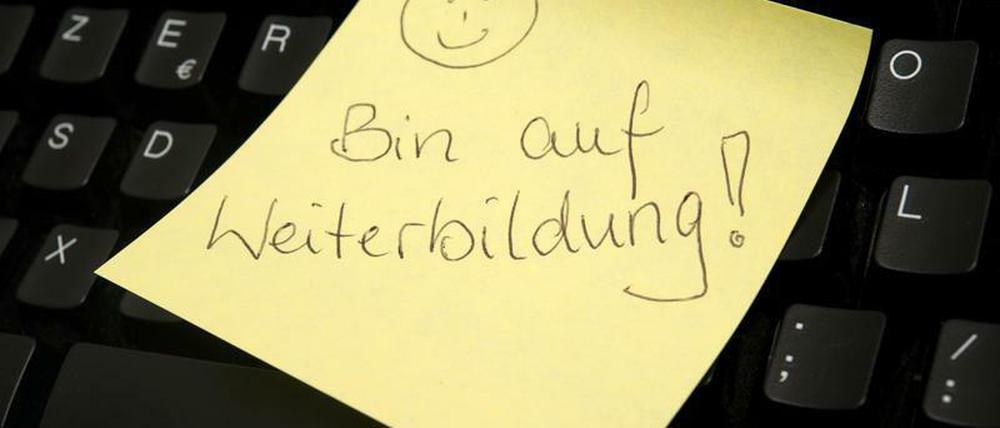 Z E R
€
O
Bin auf
S D
Weiterbildung!
L
X
; ,
/ :